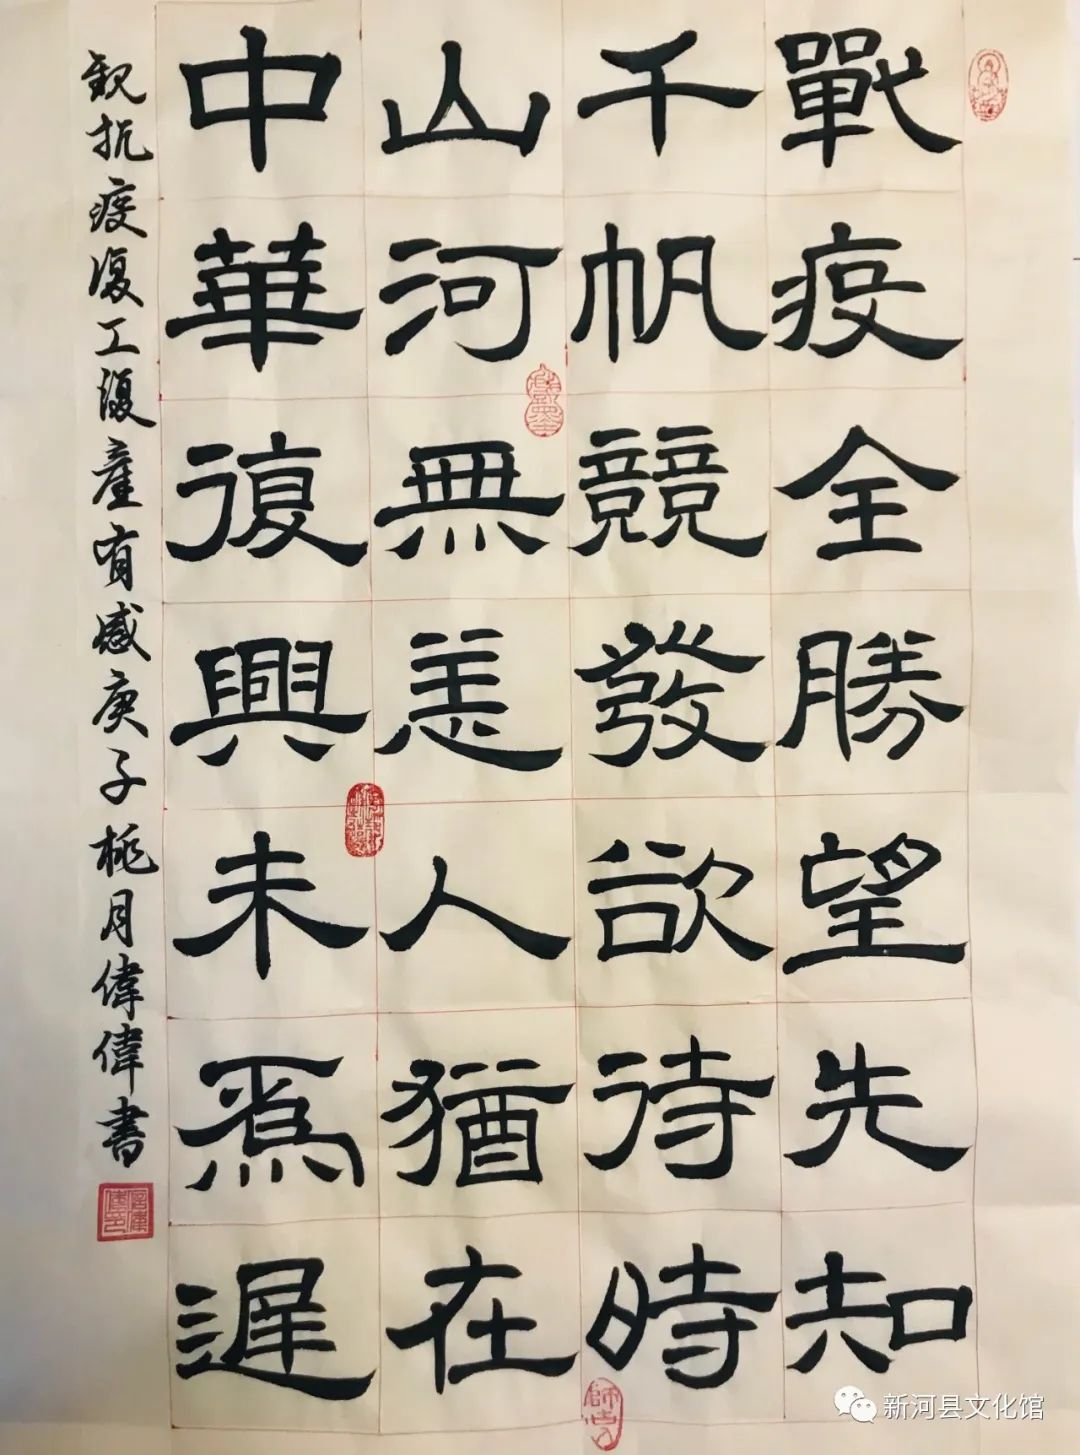 戰疫全勝望先知
千帆競發欲待時
山河無恙人猶在
中華復興未爲遲
觀抗疫復工復產有感庚子桃月偉偉書
新河县文化馆